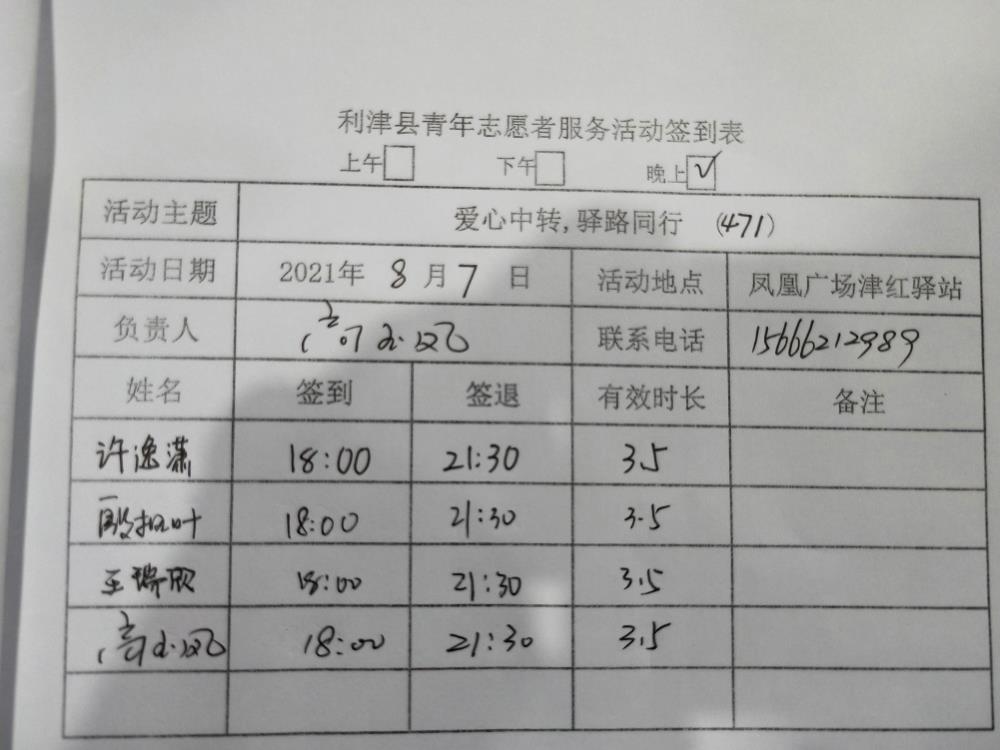 利津县青年志愿者服务活动签到表
上午 下午 晚上 ✓
活动主题 爱心中转,驿路同行 (471)
活动日期 2021年 8 月 7 日 活动地点 凤凰广场津红驿站
负责人 高小风 联系电话 15666212989
姓名 签到 签退 有效时长 备注
许逸潇 18:00 21:30 3.5
18:00 21:30 3.5
王瑞欣 18:00 21:30 3.5
高小风 18:00 21:30 3.5